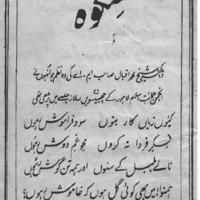 شکوہ
ڈاکٹر شیخ محمد اقبال صاحب ایم۔ اے کی وہ نظم جو انہوں نے
انجمن حمایت اسلام لاہور کے سالانہ جلسے میں پڑھی تھی
کیوں زیاں کار بنوں سود فراموش رہوں
فکر فردا نہ کروں محو غم دوش رہوں
نالے بلبل کے سنوں اور ہمہ تن گوش رہوں
ہمنوا میں بھی کوئی گل ہوں کہ خاموش رہوں